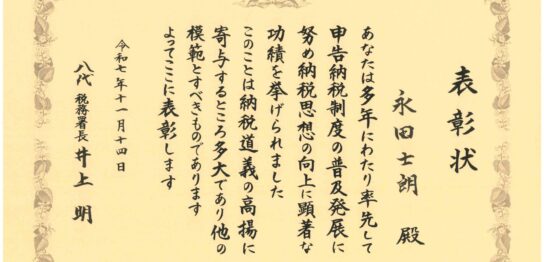 表彰状
永田士朗 殿
あなたは多年にわたり率先して
申告納税制度の普及発展に
努め納税思想の向上に顕著な
功績を挙げられました
このことは納税道義の高揚に
寄与するところ多大であり他の
模範とすべきものであります
よってここに表彰します
令和七年十一月十四日
八代 税務署長 井上 明